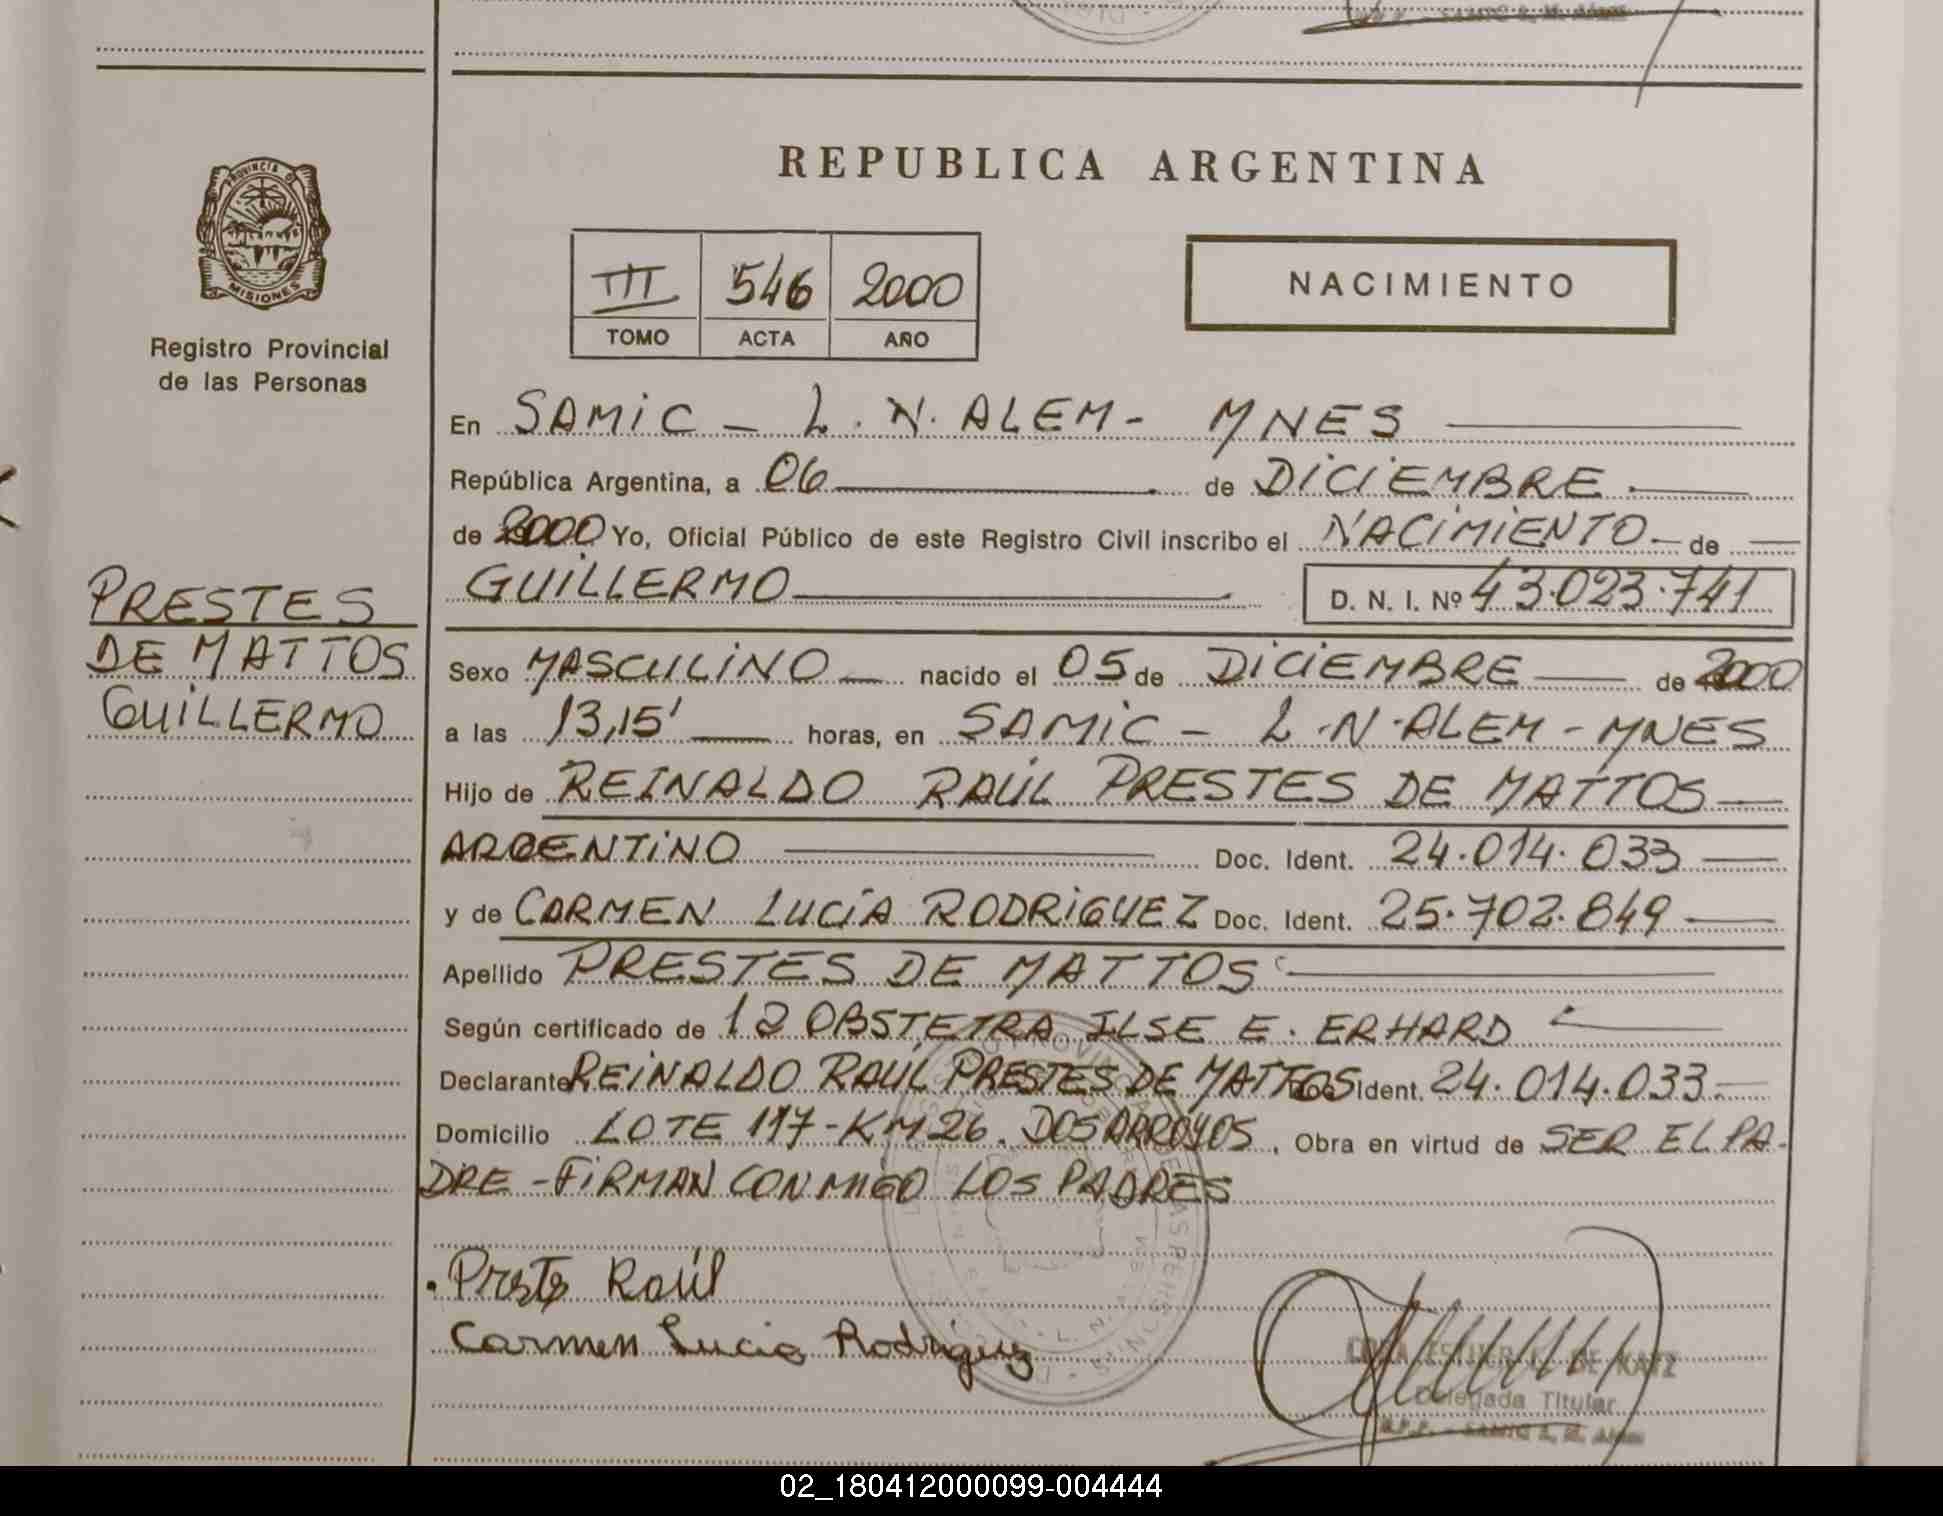 REPUBLICA ARGENTINA
PROVINCIA D
MISIONES
Registro Provincial
de las Personas
III 546 2000
TOMO ACTA AÑO
NACIMIENTO
En SAMIC - L. N. ALEM - MNES
República Argentina, a 06 de DICIEMBRE
de 2000 Yo, Oficial Público de este Registro Civil inscribo el NACIMIENTO de
GUILLERMO D. N. I. Nº 43.023.741
PRESTES
DE MATTOS
GUILLERMO
Sexo MASCULINO nacido el 05 de DICIEMBRE de 2000
a las 13,15' horas, en SAMIC - L.N.ALEM - MNES
Hijo de REINALDO RAÚL PRESTES DE MATTOS
ARGENTINO Doc. Ident. 24.014.033
y de CARMEN LUCÍA RODRIGUEZ Doc. Ident. 25.702.849
Apellido PRESTES DE MATTOS
Según certificado de 12 OBSTETRA ILSE E. ERHARD
Declarante REINALDO RAÚL PRESTES DE MATTOS Doc. Ident. 24.014.033
Domicilio LOTE 117-KM26. DOS ARROYOS, Obra en virtud de SER EL PA-
DRE - FIRMAN CONMIGO LOS PADRES
Prests Raúl
Carmen Lucia Rodriguez
DE KATZ
Delegada Titular
02_180412000099-004444